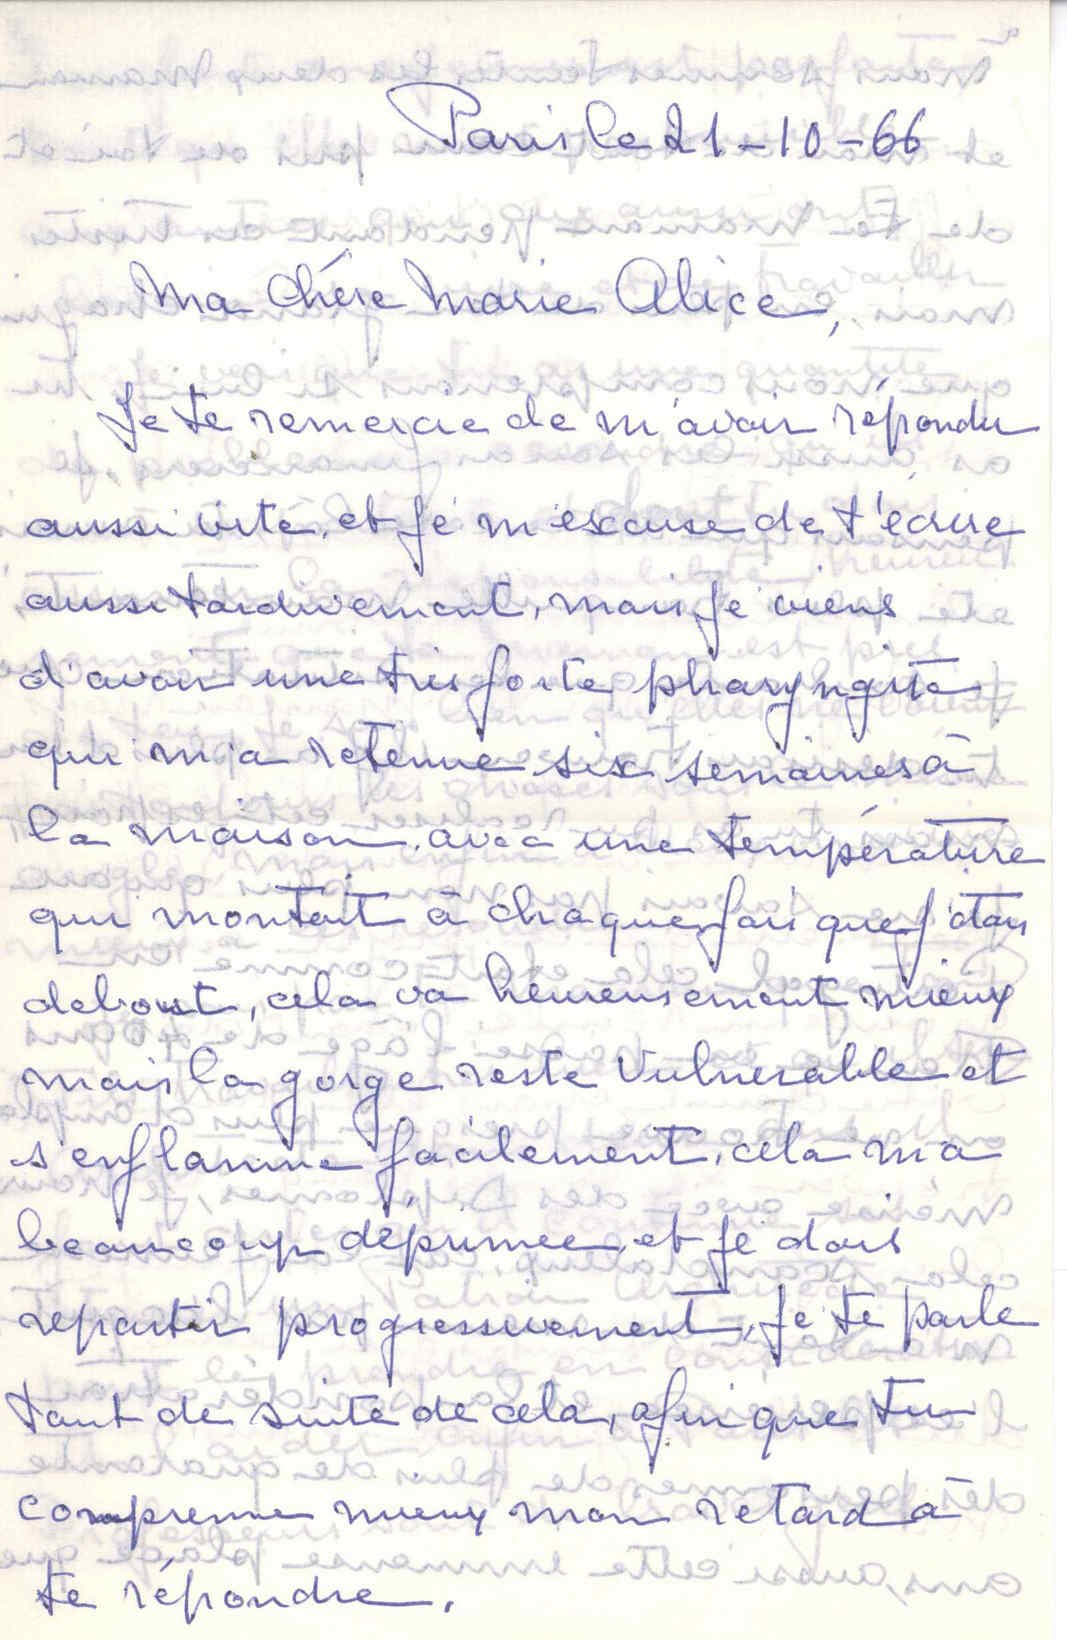 Paris le 21-10-66
Ma chère Marie Alice,
Je te remercie de m'avoir répondu
aussi vite, et je m'excuse de t'écrire
aussi tardivement, mais je viens
d'avoir une très forte pharyngite
qui m'a retenue six semaines à
la maison, avec une température
qui montait à chaque fois que j'étais
debout, cela va heureusement mieux
mais la gorge reste vulnerable et
s'enflamme facilement, cela m'a
beaucoup déprimée, et je dois
repartir progressivement, je te parle
tout de suite de cela, afin que tu
comprenne mieux mon retard à
te répondre.